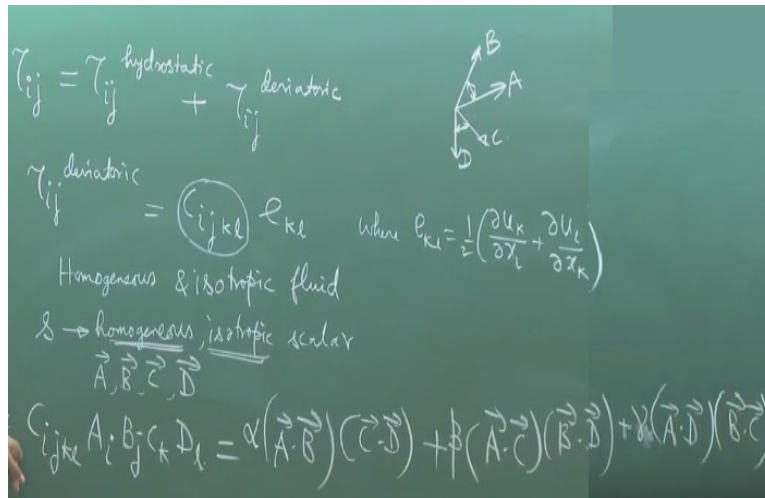 τij = τij^hydrostatic + τij^deviatoric
B
A
C
D
τij^deviatoric = Cijkl ekl where ekl = 1/2 (∂uk/∂xl + ∂ul/∂xk)
Homogeneous & isotropic fluid
S → homogeneous, isotropic scalar
A⃗, B⃗, C⃗, D⃗
Cijkl Ai Bj Ck Dl = α(A⃗·B⃗)(C⃗·D⃗) + β(A⃗·C⃗)(B⃗·D⃗) + γ(A⃗·D⃗)(B⃗·C⃗)